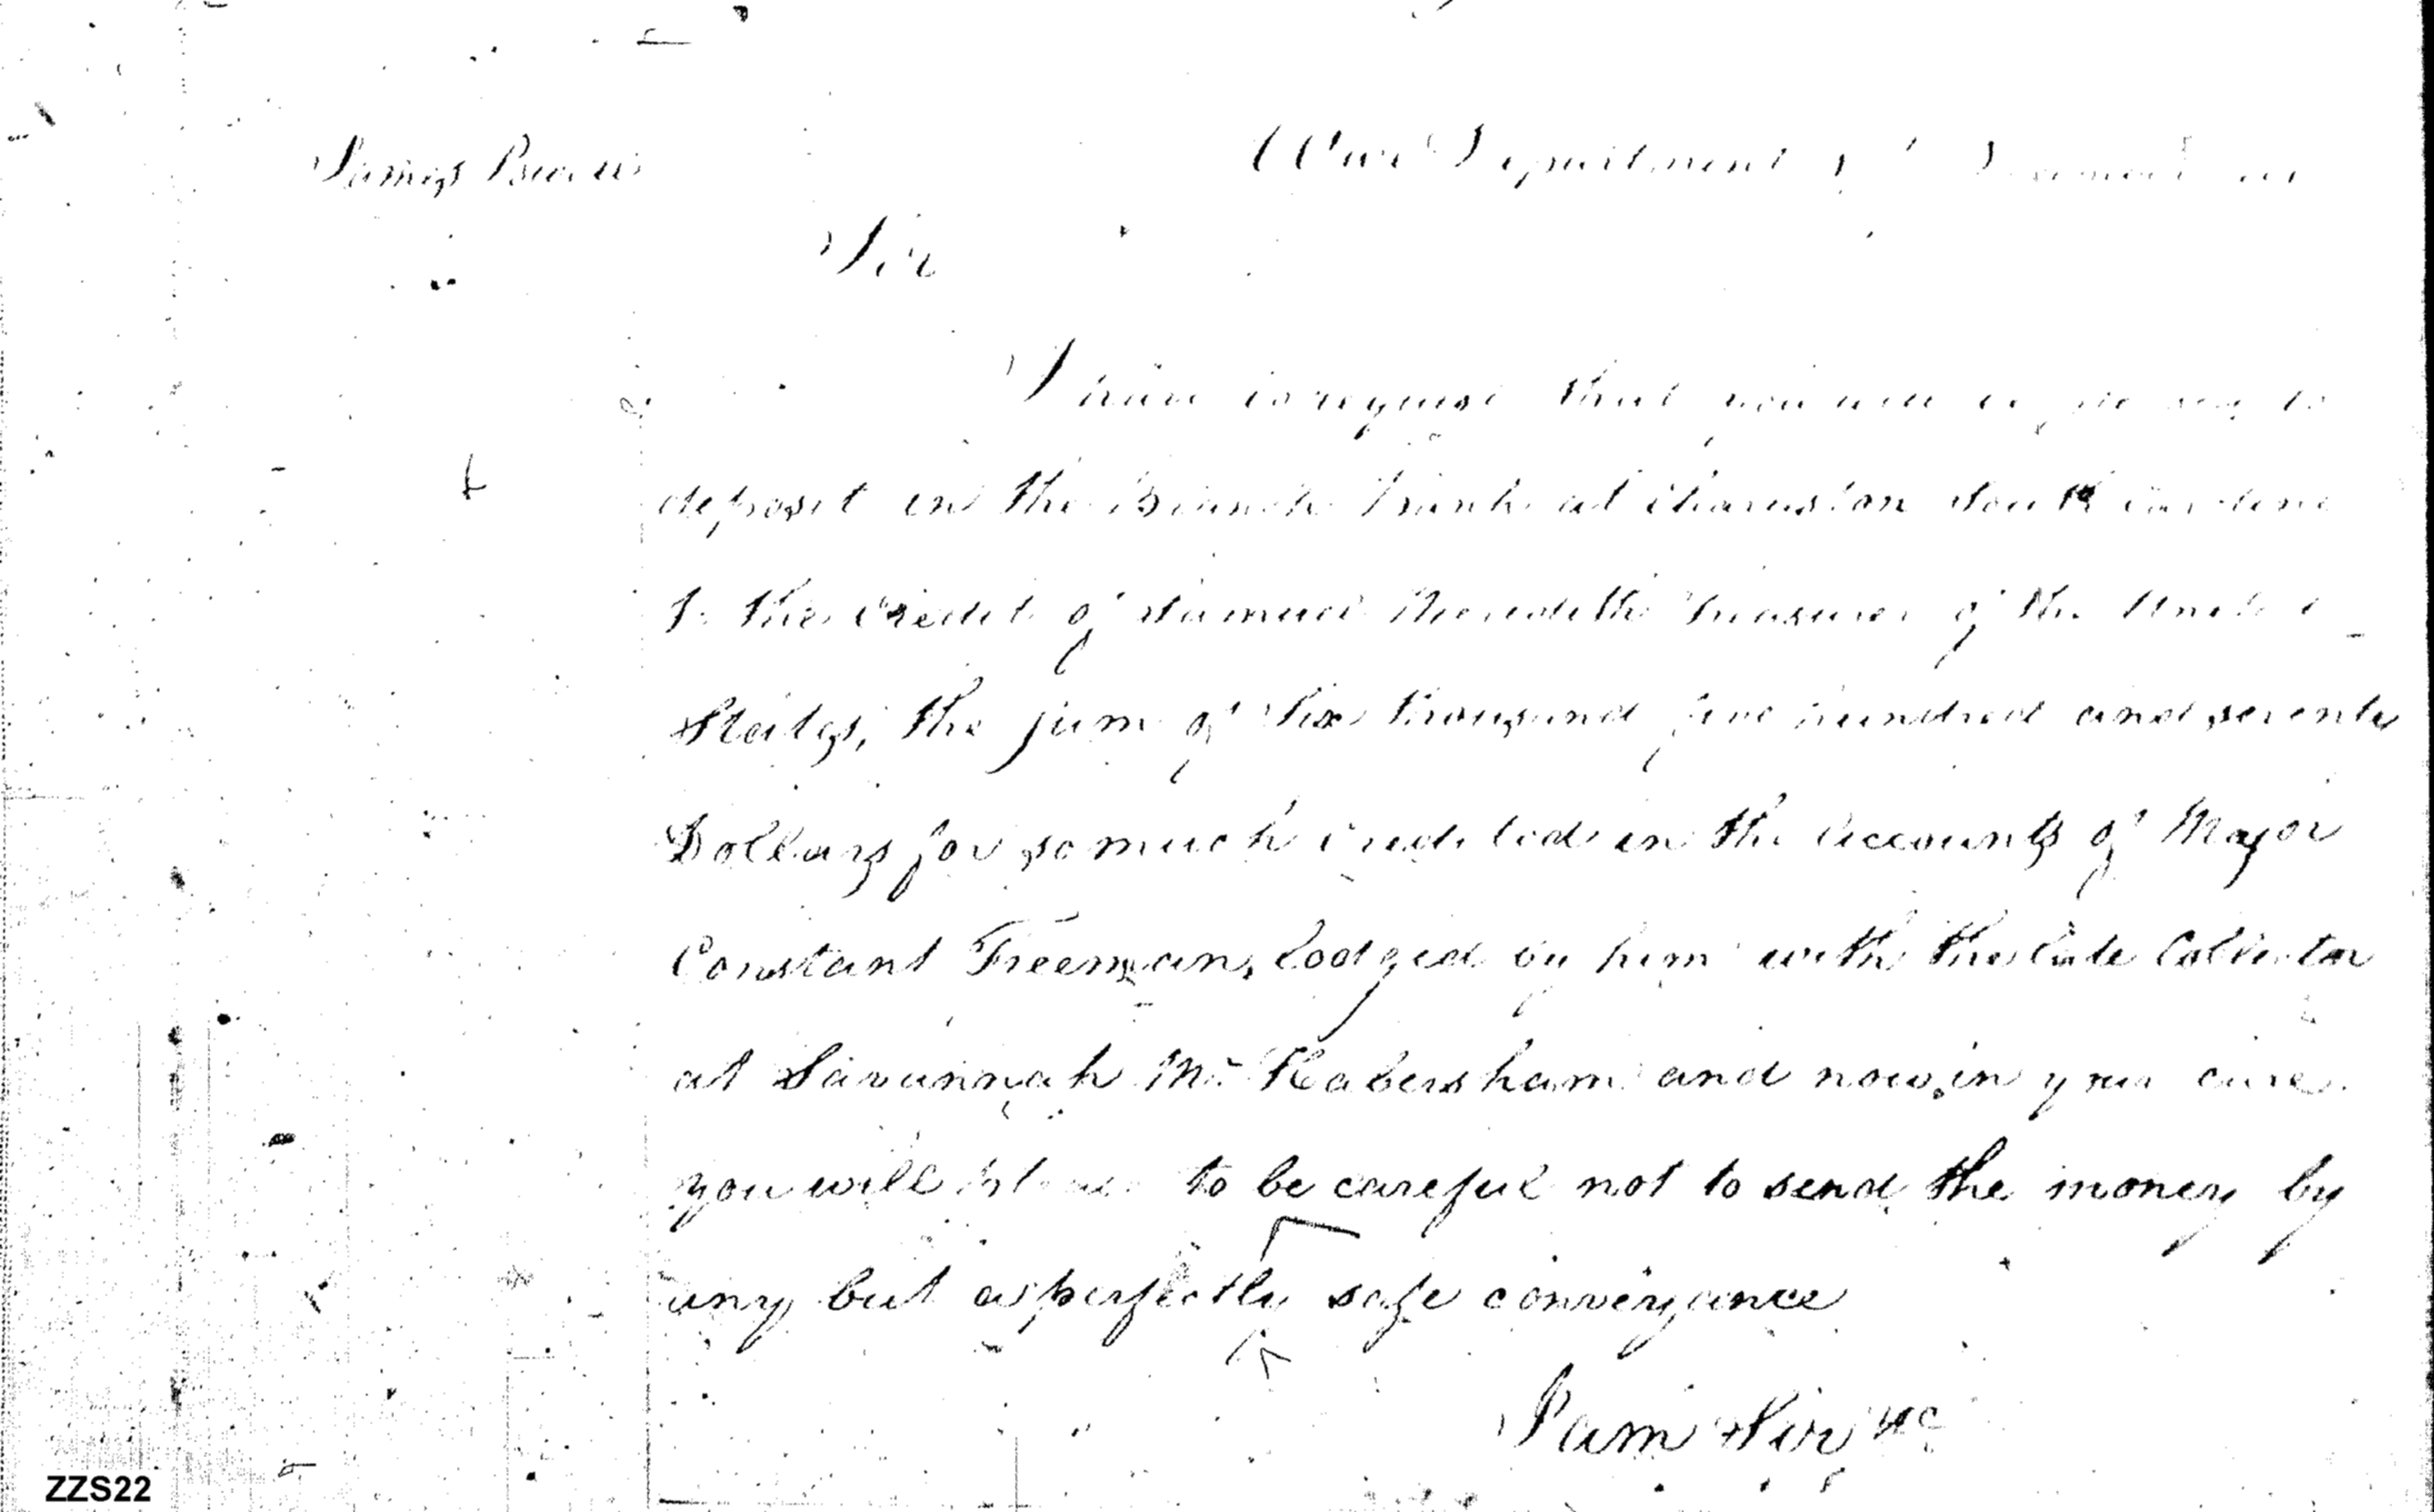 James
War Department
Sir
I have to request that you will
deposit in the Branch Bank at Charleston South Carolina
to the Credit of Samuel Meredith Treasurer of the United
States, the sum of Six thousand five hundred and seventy
Dollars for so much credited in the Accounts of Major
Constant Freeman, lodged by him with the late Collector
at Savannah Mr Habersham and now in your care.
you will please to be careful not to send the money by
any but a perfectly safe conveyance
I am Sir &c
ZZS22